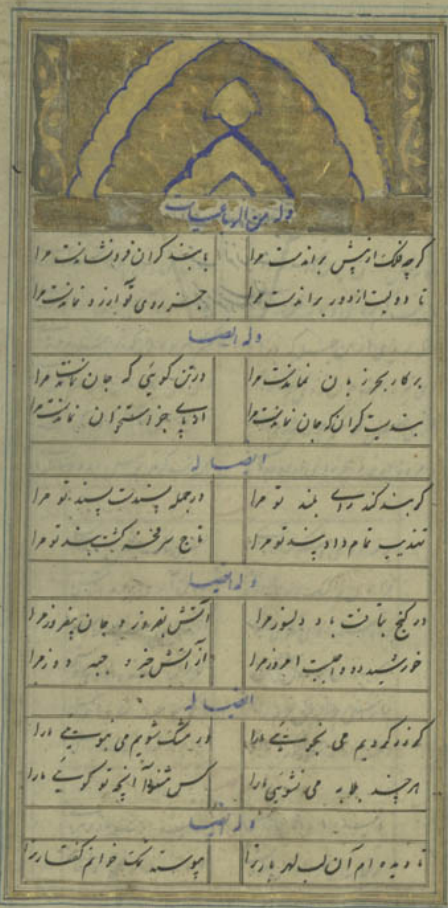 وله من الرباعیات
گرچه فلک از پیش براندست مرا
تا دولت از دور براندست مرا جز روی تو آرزو نماندست مرا
وله ایضا
بر کار بجز زبان نماندست مرا در تن گوئی که جان نماندست مرا
بندیست گران که جان نماندست مرا جز استخوان نماندست مرا
ایضا له
گر بند کند رای بلند تو مرا در جمله پسندست پسند تو مرا
تهذیب تمام داد پند تو مرا تاج سر فخر گشت بند تو مرا
وله ایضا
در کنج دلسوز مرا آتش بفروز و جان بیفروز مرا
خورشید امروز مرا از آتش خیز و جبه دوز مرا
ایضا له
گر زر گردیم می نجوئی ما را ور مشک شویم می نبوئی ما را
هر چند بلابه می نشوئی ما را کس مشنود آنچه تو گوئی ما را
وله ایضا
تا دیده ام آن لب گهر بار ترا پیوسته نمک خوانم گفتار ترا